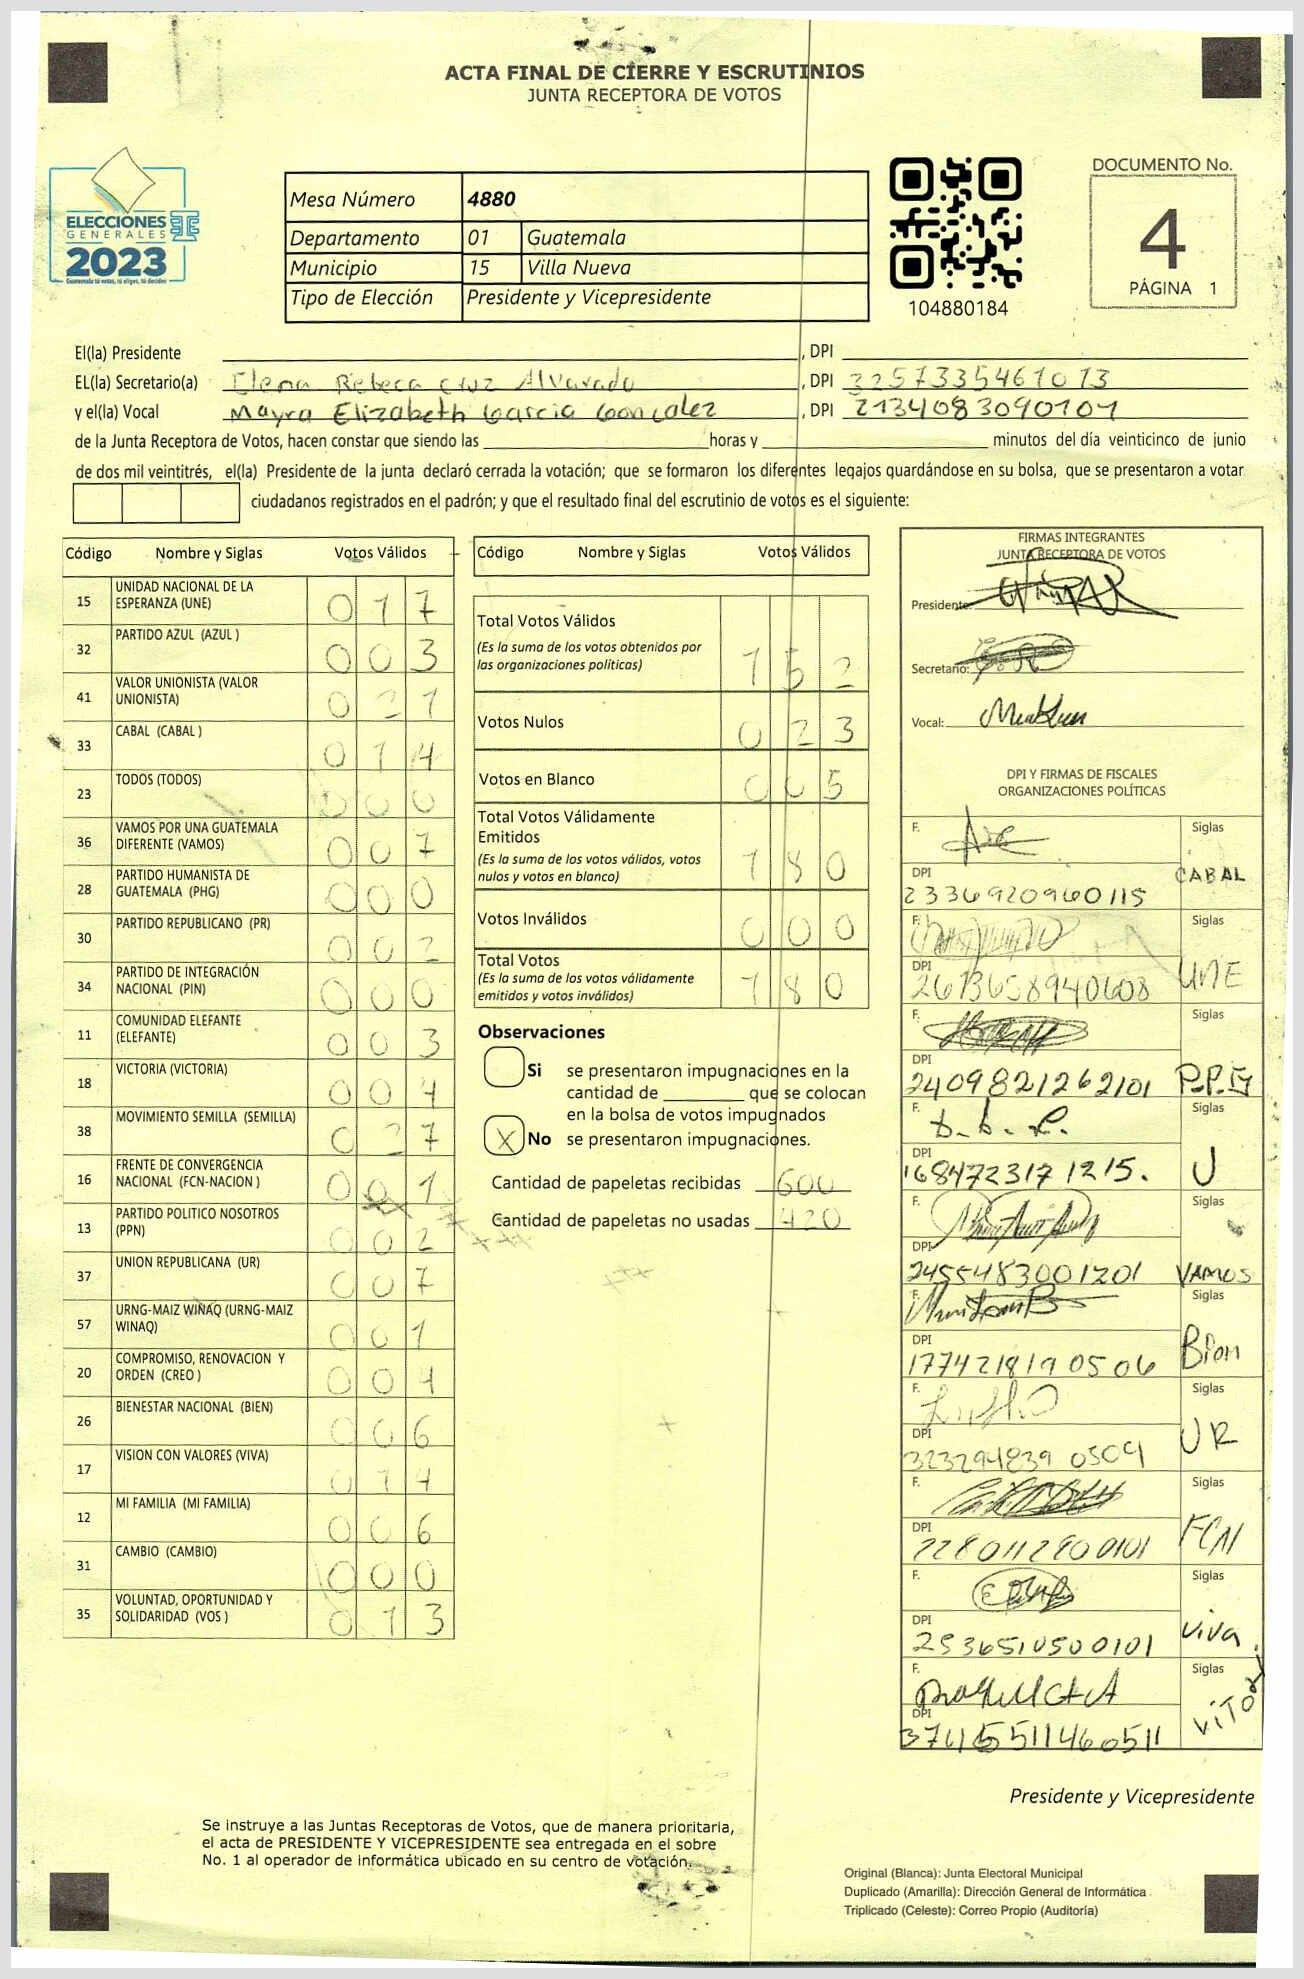 ACTA FINAL DE CIERRE Y ESCRUTINIOS
JUNTA RECEPTORA DE VOTOS
ELECCIONES
GENERALES
2023
Guatemala tú votas, tú eliges, tú decides
Mesa Número 4880
Departamento 01 Guatemala
Municipio 15 Villa Nueva
Tipo de Elección Presidente y Vicepresidente
104880184
DOCUMENTO No.
4
PÁGINA 1
El(la) Presidente , DPI
EL(la) Secretario(a) Elena Rebeca Cruz Alvarado , DPI 3257335461013
y el(la) Vocal Mayra Elizabeth Garcia Gonzalez , DPI 2134083090101
de la Junta Receptora de Votos, hacen constar que siendo las horas y minutos del día veinticinco de junio
de dos mil veintitrés, el(la) Presidente de la junta declaró cerrada la votación; que se formaron los diferentes legajos quardándose en su bolsa, que se presentaron a votar
ciudadanos registrados en el padrón; y que el resultado final del escrutinio de votos es el siguiente:
Código Nombre y Siglas Votos Válidos
15 UNIDAD NACIONAL DE LA ESPERANZA (UNE) 017
32 PARTIDO AZUL (AZUL ) 003
41 VALOR UNIONISTA (VALOR UNIONISTA) 021
33 CABAL (CABAL ) 014
23 TODOS (TODOS) 000
36 VAMOS POR UNA GUATEMALA DIFERENTE (VAMOS) 007
28 PARTIDO HUMANISTA DE GUATEMALA (PHG) 000
30 PARTIDO REPUBLICANO (PR) 002
34 PARTIDO DE INTEGRACIÓN NACIONAL (PIN) 000
11 COMUNIDAD ELEFANTE (ELEFANTE) 003
18 VICTORIA (VICTORIA) 004
38 MOVIMIENTO SEMILLA (SEMILLA) 027
16 FRENTE DE CONVERGENCIA NACIONAL (FCN-NACION ) 001
13 PARTIDO POLITICO NOSOTROS (PPN) 002
37 UNION REPUBLICANA (UR) 007
57 URNG-MAIZ WINAQ (URNG-MAIZ WINAQ) 001
20 COMPROMISO, RENOVACION Y ORDEN (CREO )
26 BIENESTAR NACIONAL (BIEN) 006
17 VISION CON VALORES (VIVA) 014
12 MI FAMILIA (MI FAMILIA) 006
31 CAMBIO (CAMBIO) 000
35 VOLUNTAD, OPORTUNIDAD Y SOLIDARIDAD (VOS ) 013
Código Nombre y Siglas Votos Válidos
Total Votos Válidos
(Es la suma de los votos obtenidos por
las organizaciones políticas) 152
Votos Nulos 023
Votos en Blanco 005
Total Votos Válidamente
Emitidos
(Es la suma de los votos válidos, votos
nulos y votos en blanco) 180
Votos Inválidos 000
Total Votos
(Es la suma de los votos válidamente
emitidos y votos inválidos) 180
Observaciones
Si se presentaron impugnaciones en la
cantidad de que se colocan
en la bolsa de votos impugnados
X No se presentaron impugnaciones.
Cantidad de papeletas recibidas 600
Cantidad de papeletas no usadas 420
FIRMAS INTEGRANTES
JUNTA RECEPTORA DE VOTOS
Presidente:
Secretario:
Vocal:
DPI Y FIRMAS DE FISCALES
ORGANIZACIONES POLÍTICAS
F. Siglas
DPI CABAL
2336920960115
F. Siglas
DPI UNE
2613658940608
F. Siglas
DPI
2409821262101 P.P.N
F. D.b.L. Siglas
DPI U
1684723171215.
F. Siglas
DPI
2455483001201 VAMOS
F. Siglas
DPI Bien
1774218190506
F. Siglas
DPI UR
3232948390504
F. Siglas
DPI FCN
2280112800101
F. Siglas
DPI viva
2536510500101
F. Siglas
DPI
Presidente y Vicepresidente
Se instruye a las Juntas Receptoras de Votos, que de manera prioritaria,
el acta de PRESIDENTE Y VICEPRESIDENTE sea entregada en el sobre
No. 1 al operador de informática ubicado en su centro de votación.
Original (Blanca): Junta Electoral Municipal
Duplicado (Amarilla): Dirección General de Informática
Triplicado (Celeste): Correo Propio (Auditoría)